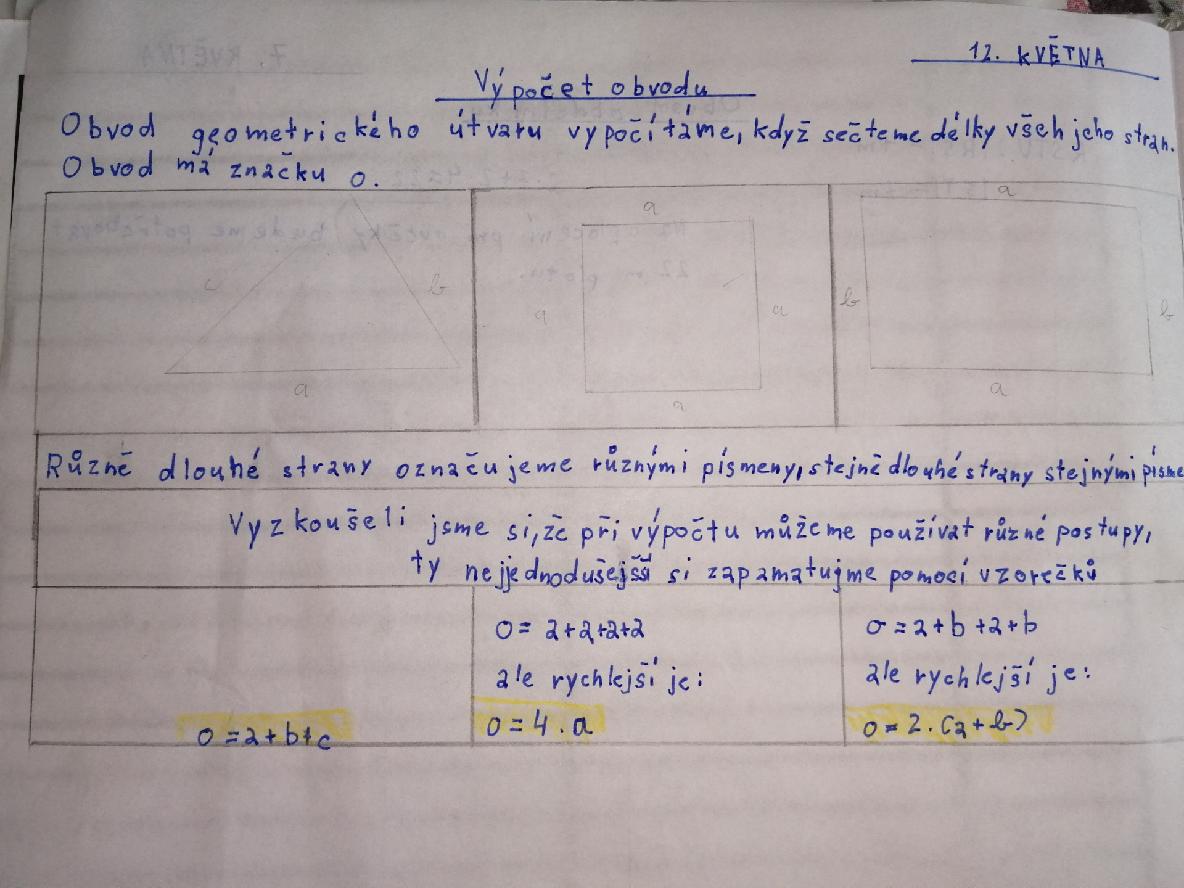 12. KVĚTNA
Výpočet obvodu
Obvod geometrického útvaru vypočítáme, když sečteme délky všech jeho stran.
Obvod má značku o.
c
b
a
a
a
a
a
a
b
b
a
Různě dlouhé strany označujeme různými písmeny, stejně dlouhé strany stejnými písme
Vyzkoušeli jsme si, že při výpočtu můžeme používat různé postupy,
ty nejjednodušejší si zapamatujme pomocí vzorečků
o = a + b + c
o = a+a+a+a
ale rychlejší je:
o = 4 . a
o = a + b + a + b
ale rychlejší je:
o = 2 . (a + b)